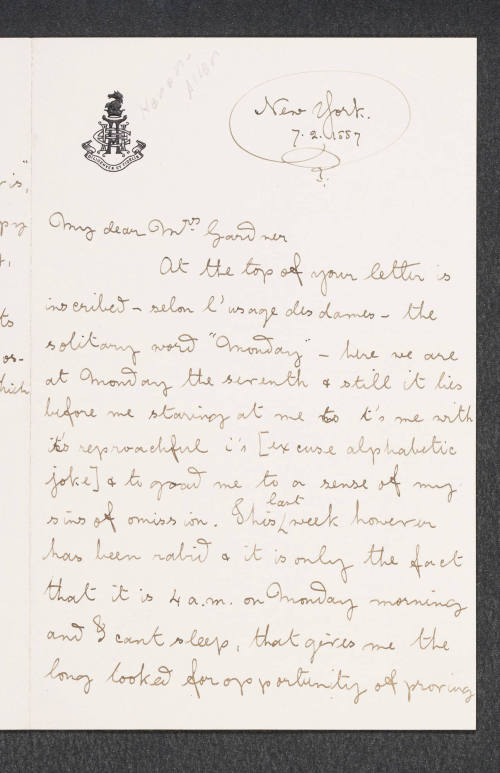 New York.
7. 2. 1887
My dear Mrs Gardner
At the top of your letter is
inscribed – selon l'usage des dames – the
solitary word "Monday" – here we are
at Monday the seventh & still it lies
before me staring at me to t's me with
it's reproachful i's [excuse alphabetic
joke] & to goad me to a sense of my
sins of omission. This last week however
has been rabid & it is only the fact
that it is 4 a.m. on Monday morning
and I cant sleep, that gives me the
long looked for opportunity of proving
is,"
ts
os-
hich